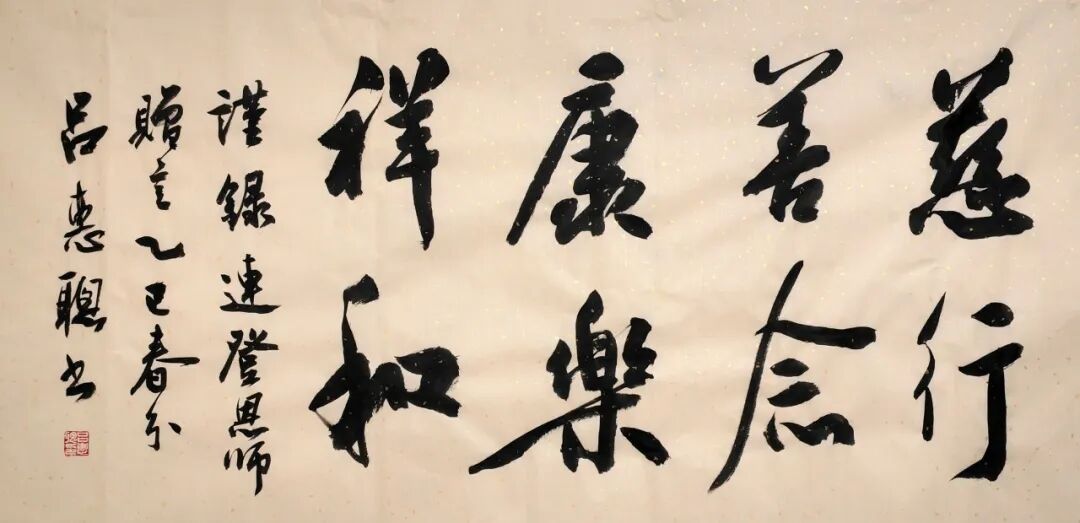 慈行
善念
康樂
祥和
謹録連登恩師
贈言乙巳春分
吕惠聰书